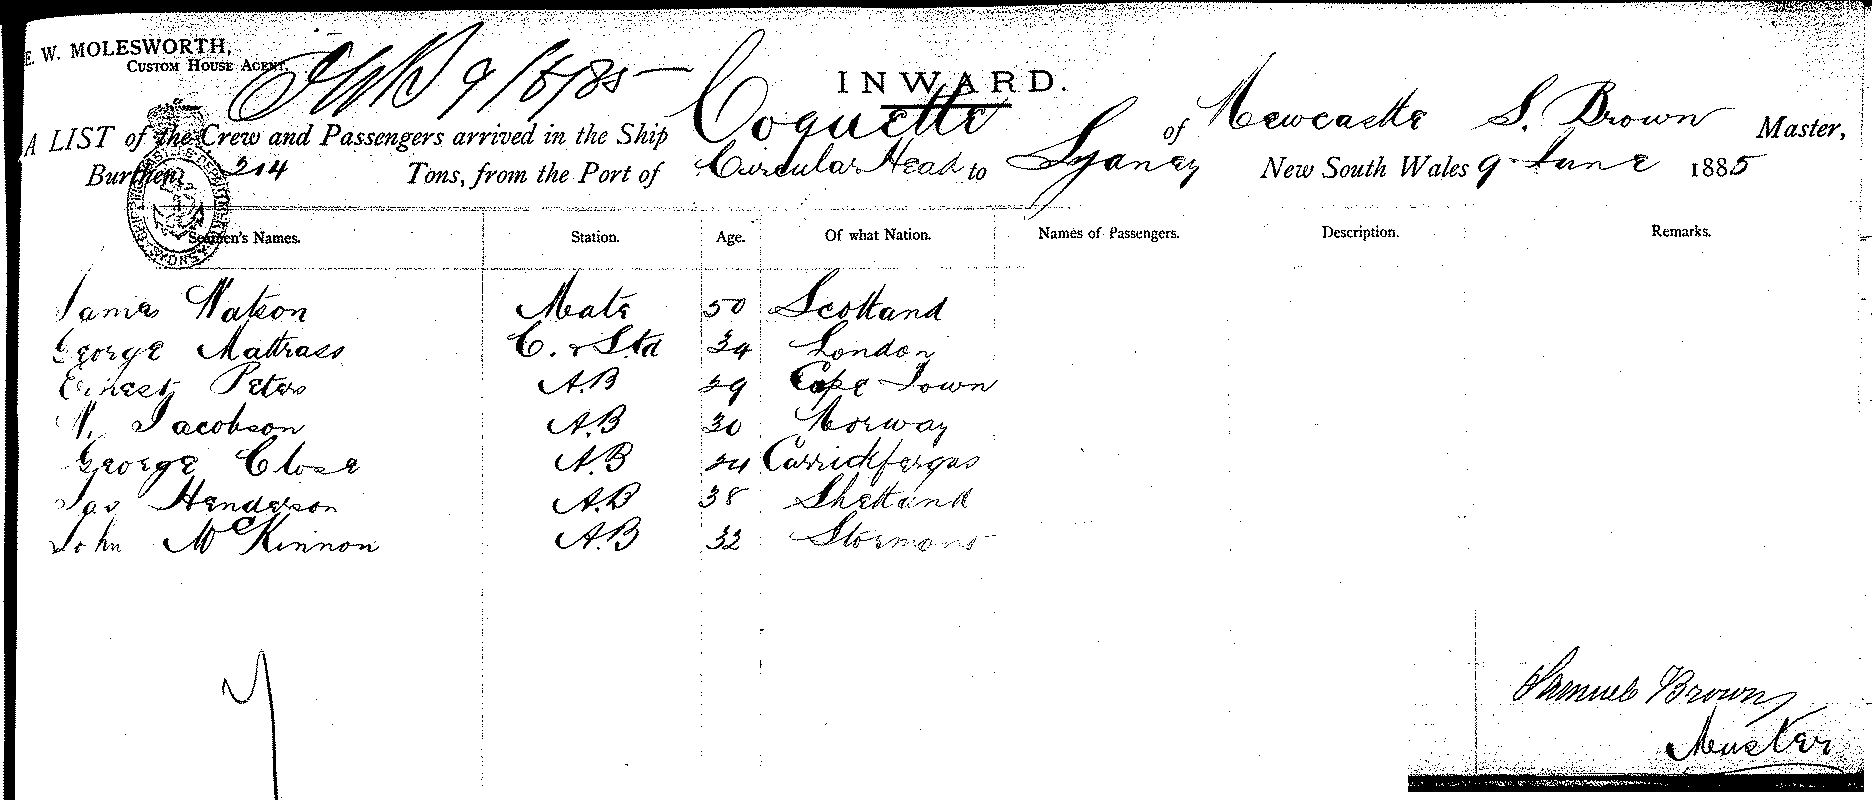 E. W. MOLESWORTH,
CUSTOM HOUSE AGENT.
9/6/85
INWARD.
A LIST of the Crew and Passengers arrived in the Ship Coquette of Newcastle S. Brown Master,
Burthen 214 Tons, from the Port of Circular Head to Sydney New South Wales 9 June 1885
Seamen's Names. Station. Age. Of what Nation. Names of Passengers. Description. Remarks.
James Watson Mate 50 Scotland
George Mattrass C. & Std 34 London
Ernest Peters A.B 29 Cape Town
N. Jacobson A.B 30 Norway
George Close A.B 24 Carrickfergus
Jas Henderson A.B 38 Shetland
John McKinnon A.B 32
7
Samuel Brown
Master